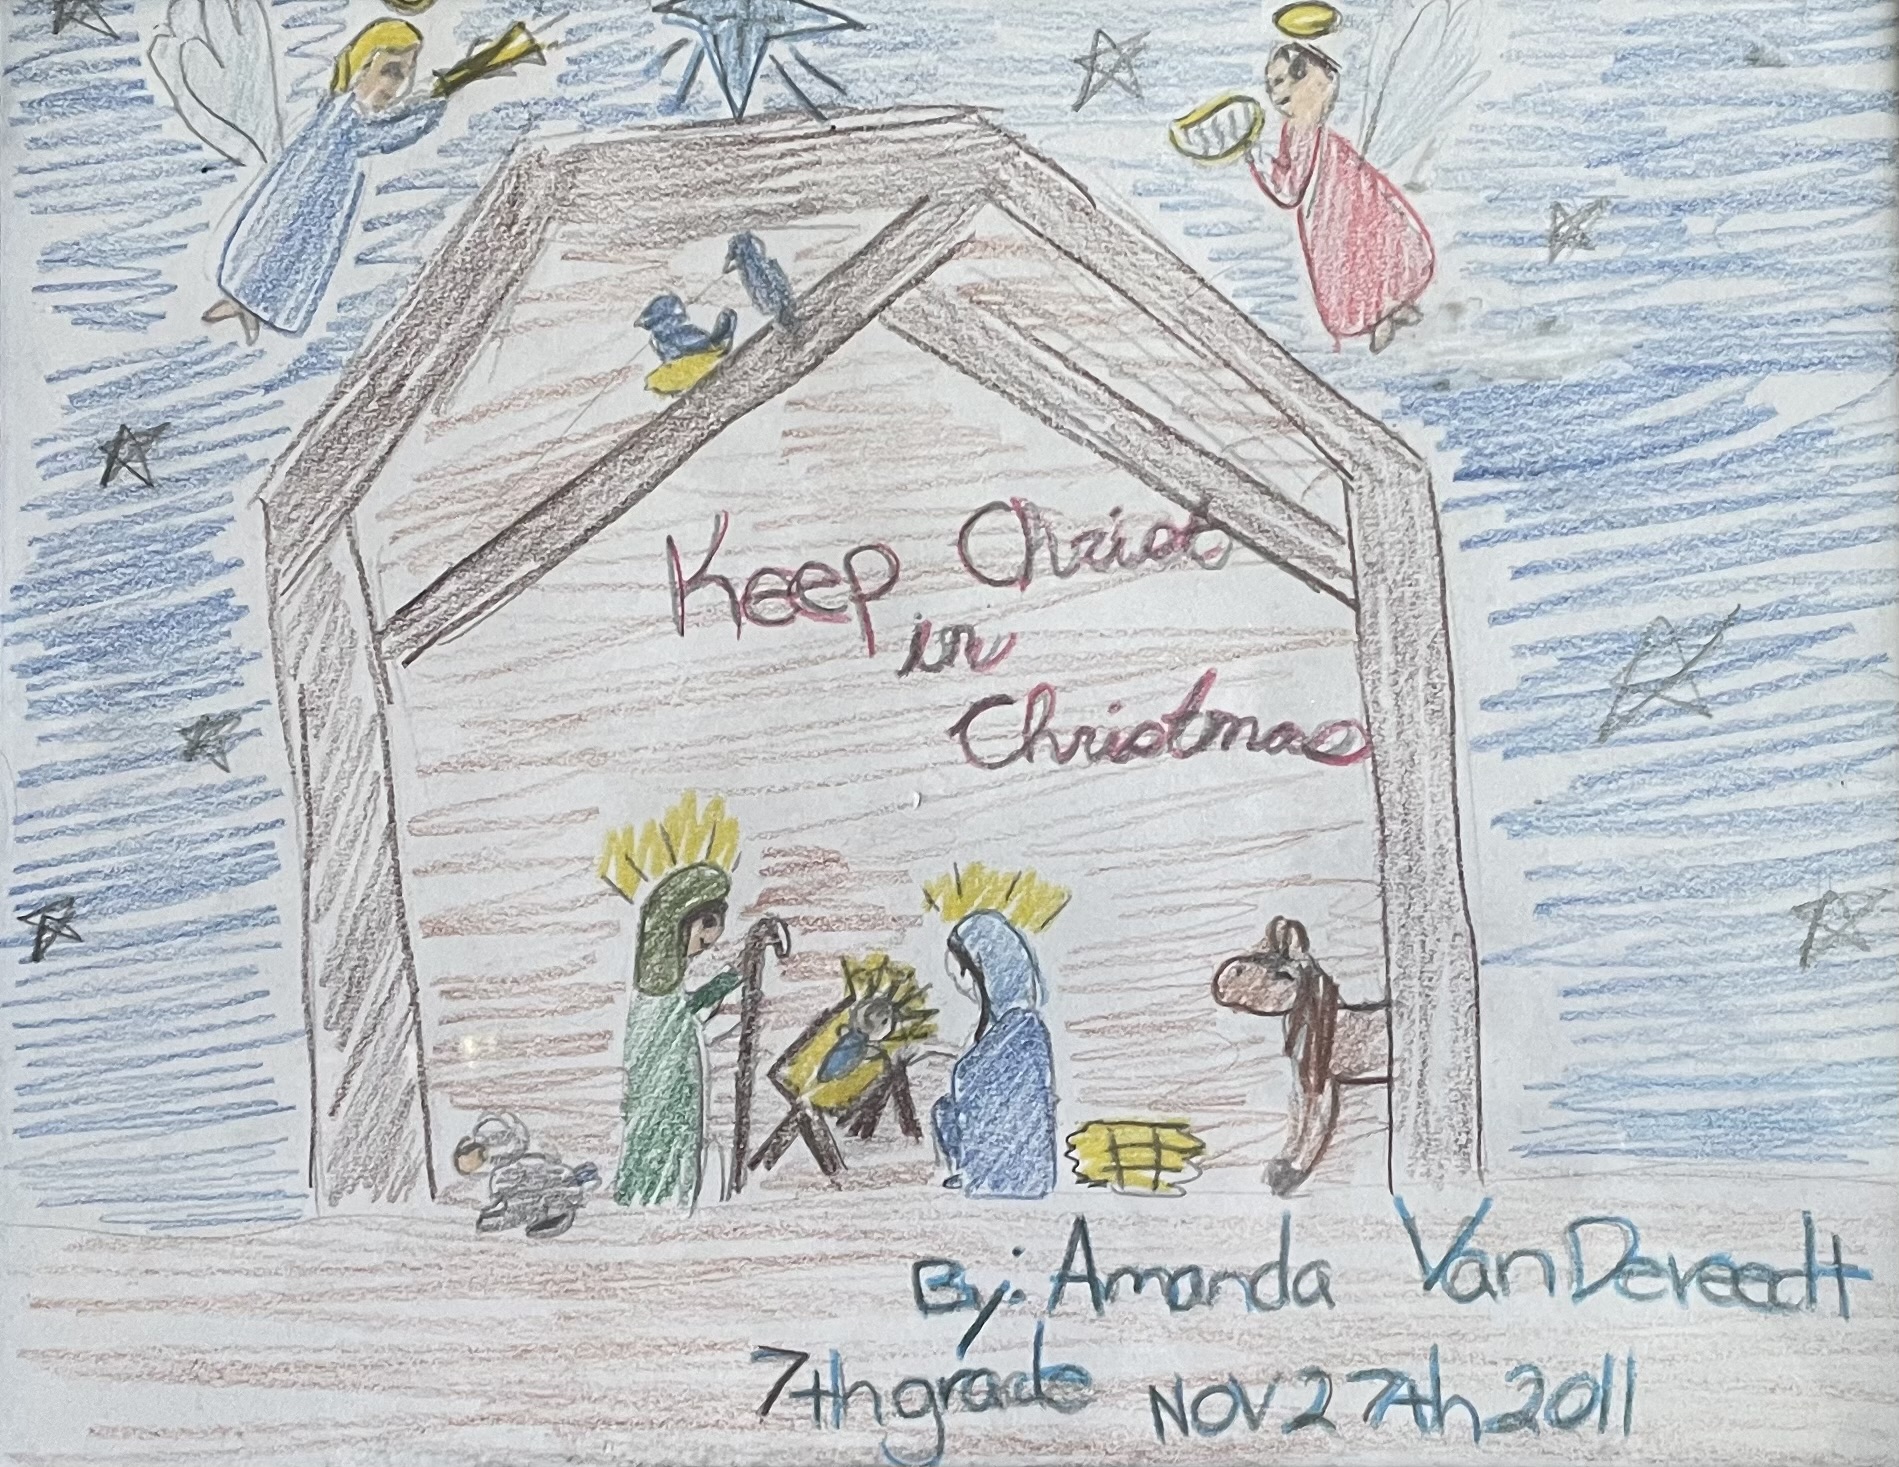 Keep Christ
in
Christmas
By: Amanda VanDereedt
7th grade NOV 27th 2011